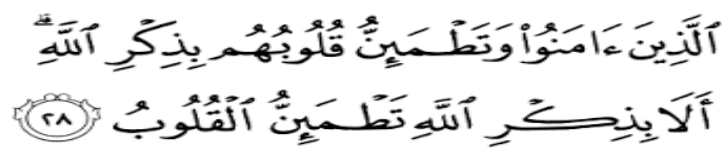 ٱلَّذِينَ ءَامَنُوا۟ وَتَطْمَئِنُّ قُلُوبُهُم بِذِكْرِ ٱللَّهِ ۗ
أَلَا بِذِكْرِ ٱللَّهِ تَطْمَئِنُّ ٱلْقُلُوبُ ٢٨